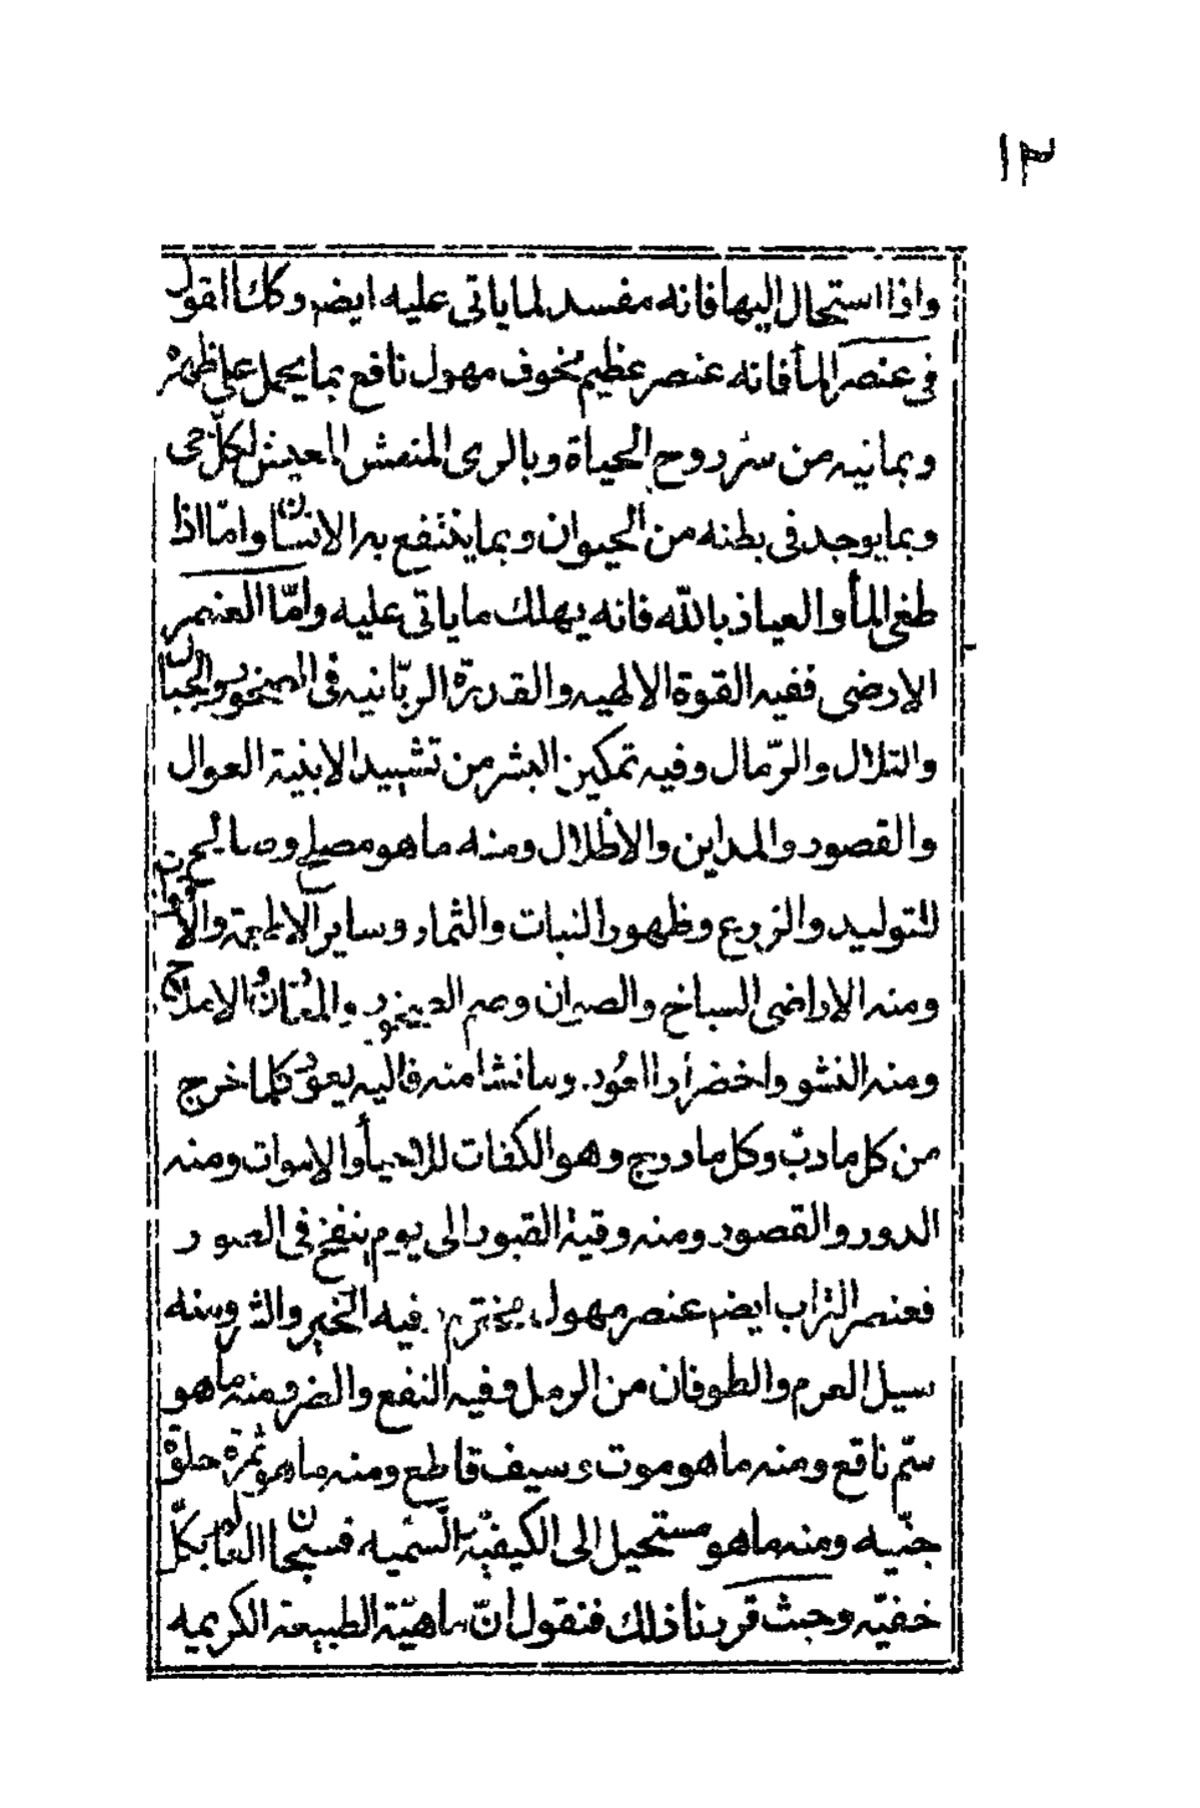 ١٣
واذا استحال اليها فانه مفسد لما ياتى عليه ايضم وكك القول
فى عنصر المأ فانه عنصر عظيم مخوف مهول نافع بما يحمل على ظهره
وبما نيه من سر روح الحياة وبالرى المنعش المعيش لكلّ حى
وبما يوجد فى بطنه من الحيوان وبما ينتفع به الانسان وامّا اذا
طغى المأ والعياذ بالله فانه يهلك ما ياتى عليه وامّا العنصر
الارضى ففيه القوة الالهيه والقدرة الربّانيه فى الصخور والجبال
والتلال والرّمال وفيه تمكين البشر من تشييد الابنية العوال
والقصور والمداين والاظلال ومنه ما هو مصلح وصالح
للتوليد والزروع وظهور النبات والثمار وساير الاطعمة والا
ومنه الاراضى السباخ والصوان وصم الصخور والمعادن الاملاح
ومنه النشو واخضرار العُود. وما نشا منه فاليه يعود كلما خرج
من كل ما دبّ وكل ما دروج وهو الكفات للاحيأ والاموات ومنه
الدور والقصور ومنه وقية القبور الى يوم ينفخ فى الصور
فعنصر التراب ايضم عنصر مهول محترم فيه الخير والشر ومنه
سيل العرم والطوفان من الرمل وفيه النفع والضر ومنه ما هو
سّم ناقع ومنه ما هو موت وسيف قاطع ومنه ما هو ثمرة حلوة
جنّيه ومنه ما هو مستحيل الى الكيفيّة السّميه فسبحان العالم بكلّ
خفيّه وحيث قررنا ذلك فنقول انّ ماهيّة الطبيعة الكريميه